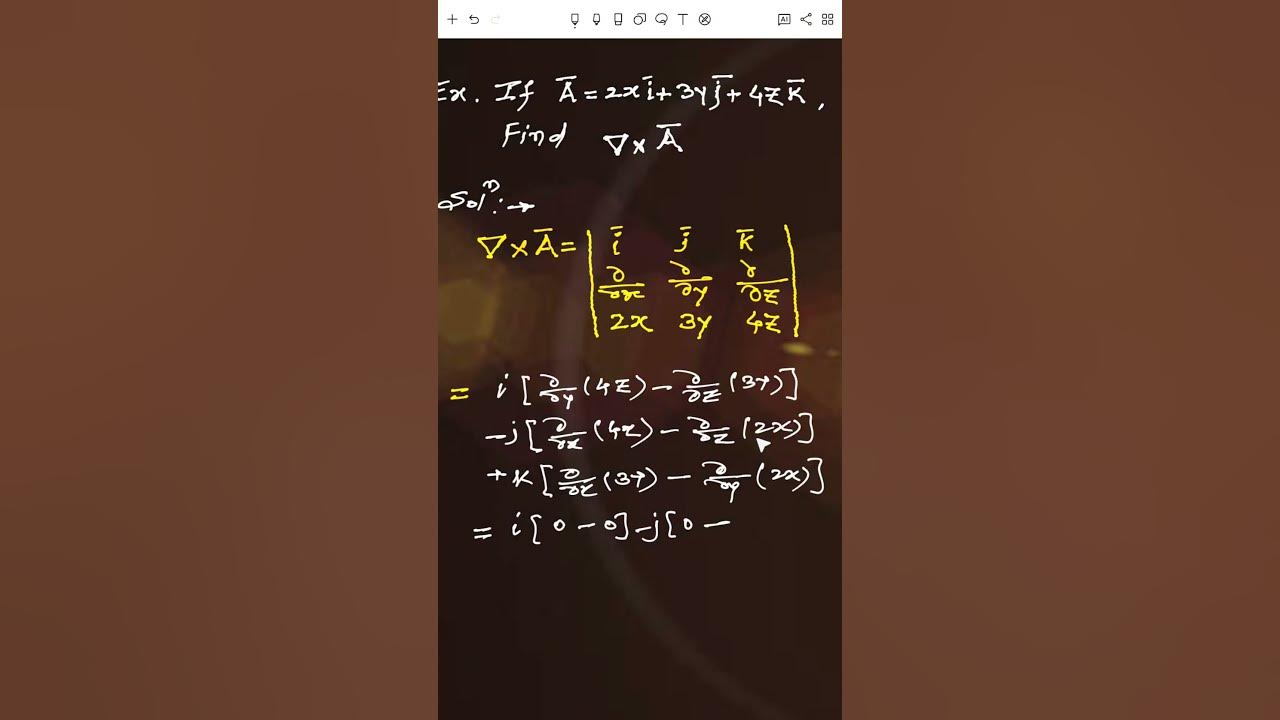 Ex. If A̅ = 2xi̅ + 3yj̅ + 4zk̅,
Find ∇ × A̅
Solⁿ: →
∇ × A̅ = | i̅ j̅ k̅ |
| ∂/∂x ∂/∂y ∂/∂z |
| 2x 3y 4z |
= i [∂/∂y (4z) − ∂/∂z (3y)]
−j [∂/∂x (4z) − ∂/∂z (2x)]
+ k [∂/∂x (3y) − ∂/∂y (2x)]
= i [0 − 0] − j [0 −